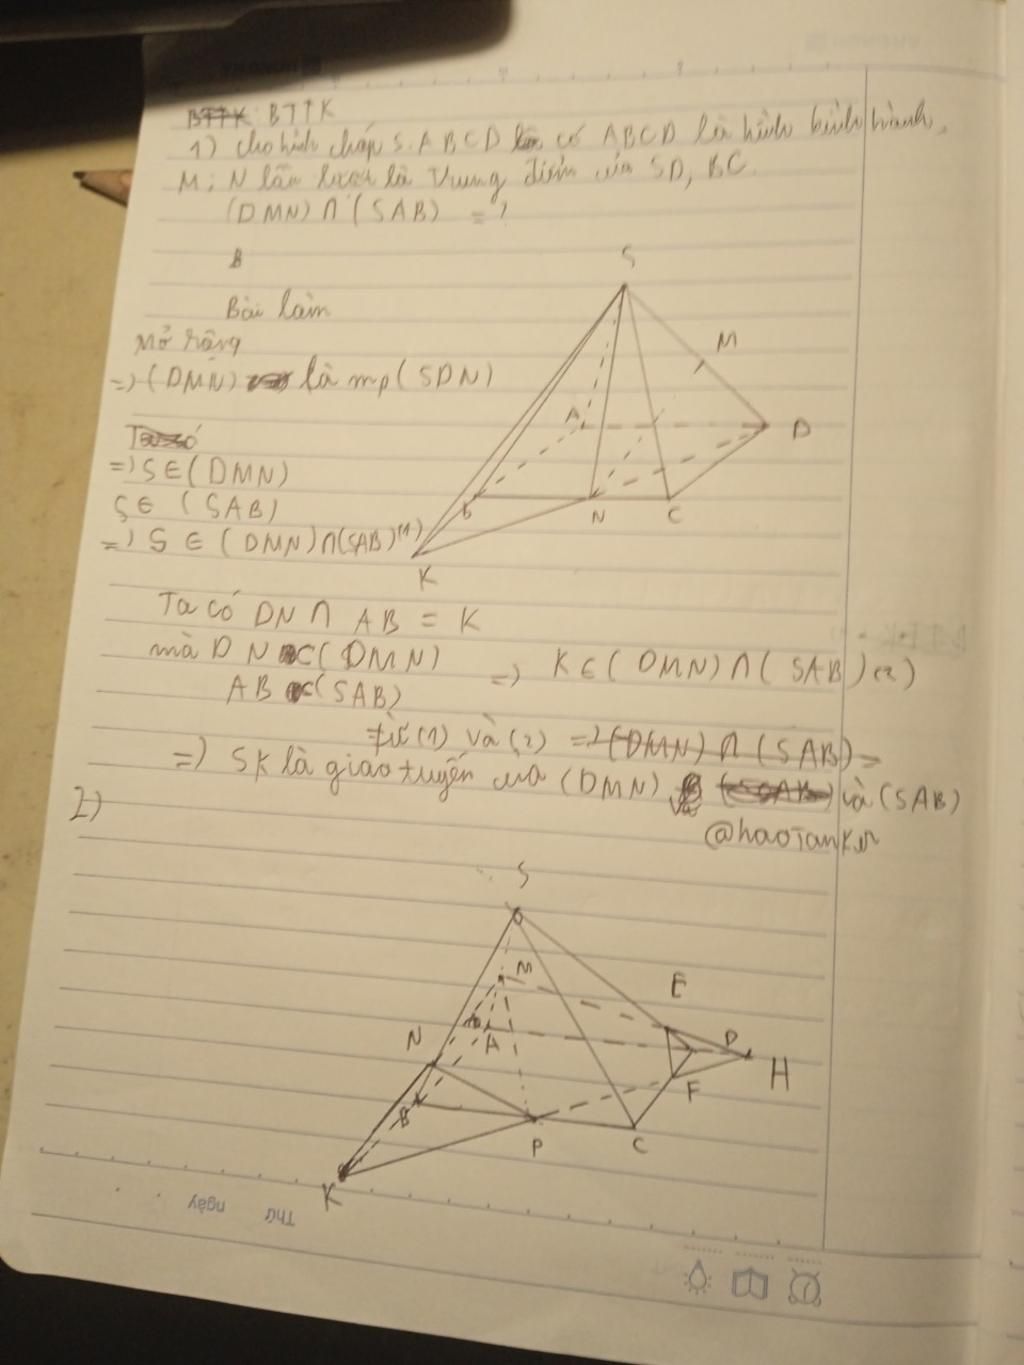 BTTK: BTTK
1) cho hình chóp S.ABCD có ABCD là hình bình hành,
M; N lần lượt là trung điểm của SD, BC.
(DMN) ∩ (SAB) = ?
B
Bài làm
Mở rộng
=) (DMN) là mp (SDN)
Ta có
=) S ∈ (DMN)
S ∈ (SAB)
=) S ∈ (DMN) ∩ (SAB) (1)
S
M
A
D
B
N
C
K
Ta có DN ∩ AB = K
mà DN ⊂ (DMN)
AB ⊂ (SAB)
=) K ∈ (DMN) ∩ (SAB) (2)
từ (1) và (2) =) (DMN) ∩ (SAB) =
=) SK là giao tuyến của (DMN) và (SAB)
@haotanker
2)
S
M
E
N
A
D
H
B
F
P
C
K
Thứ ngày